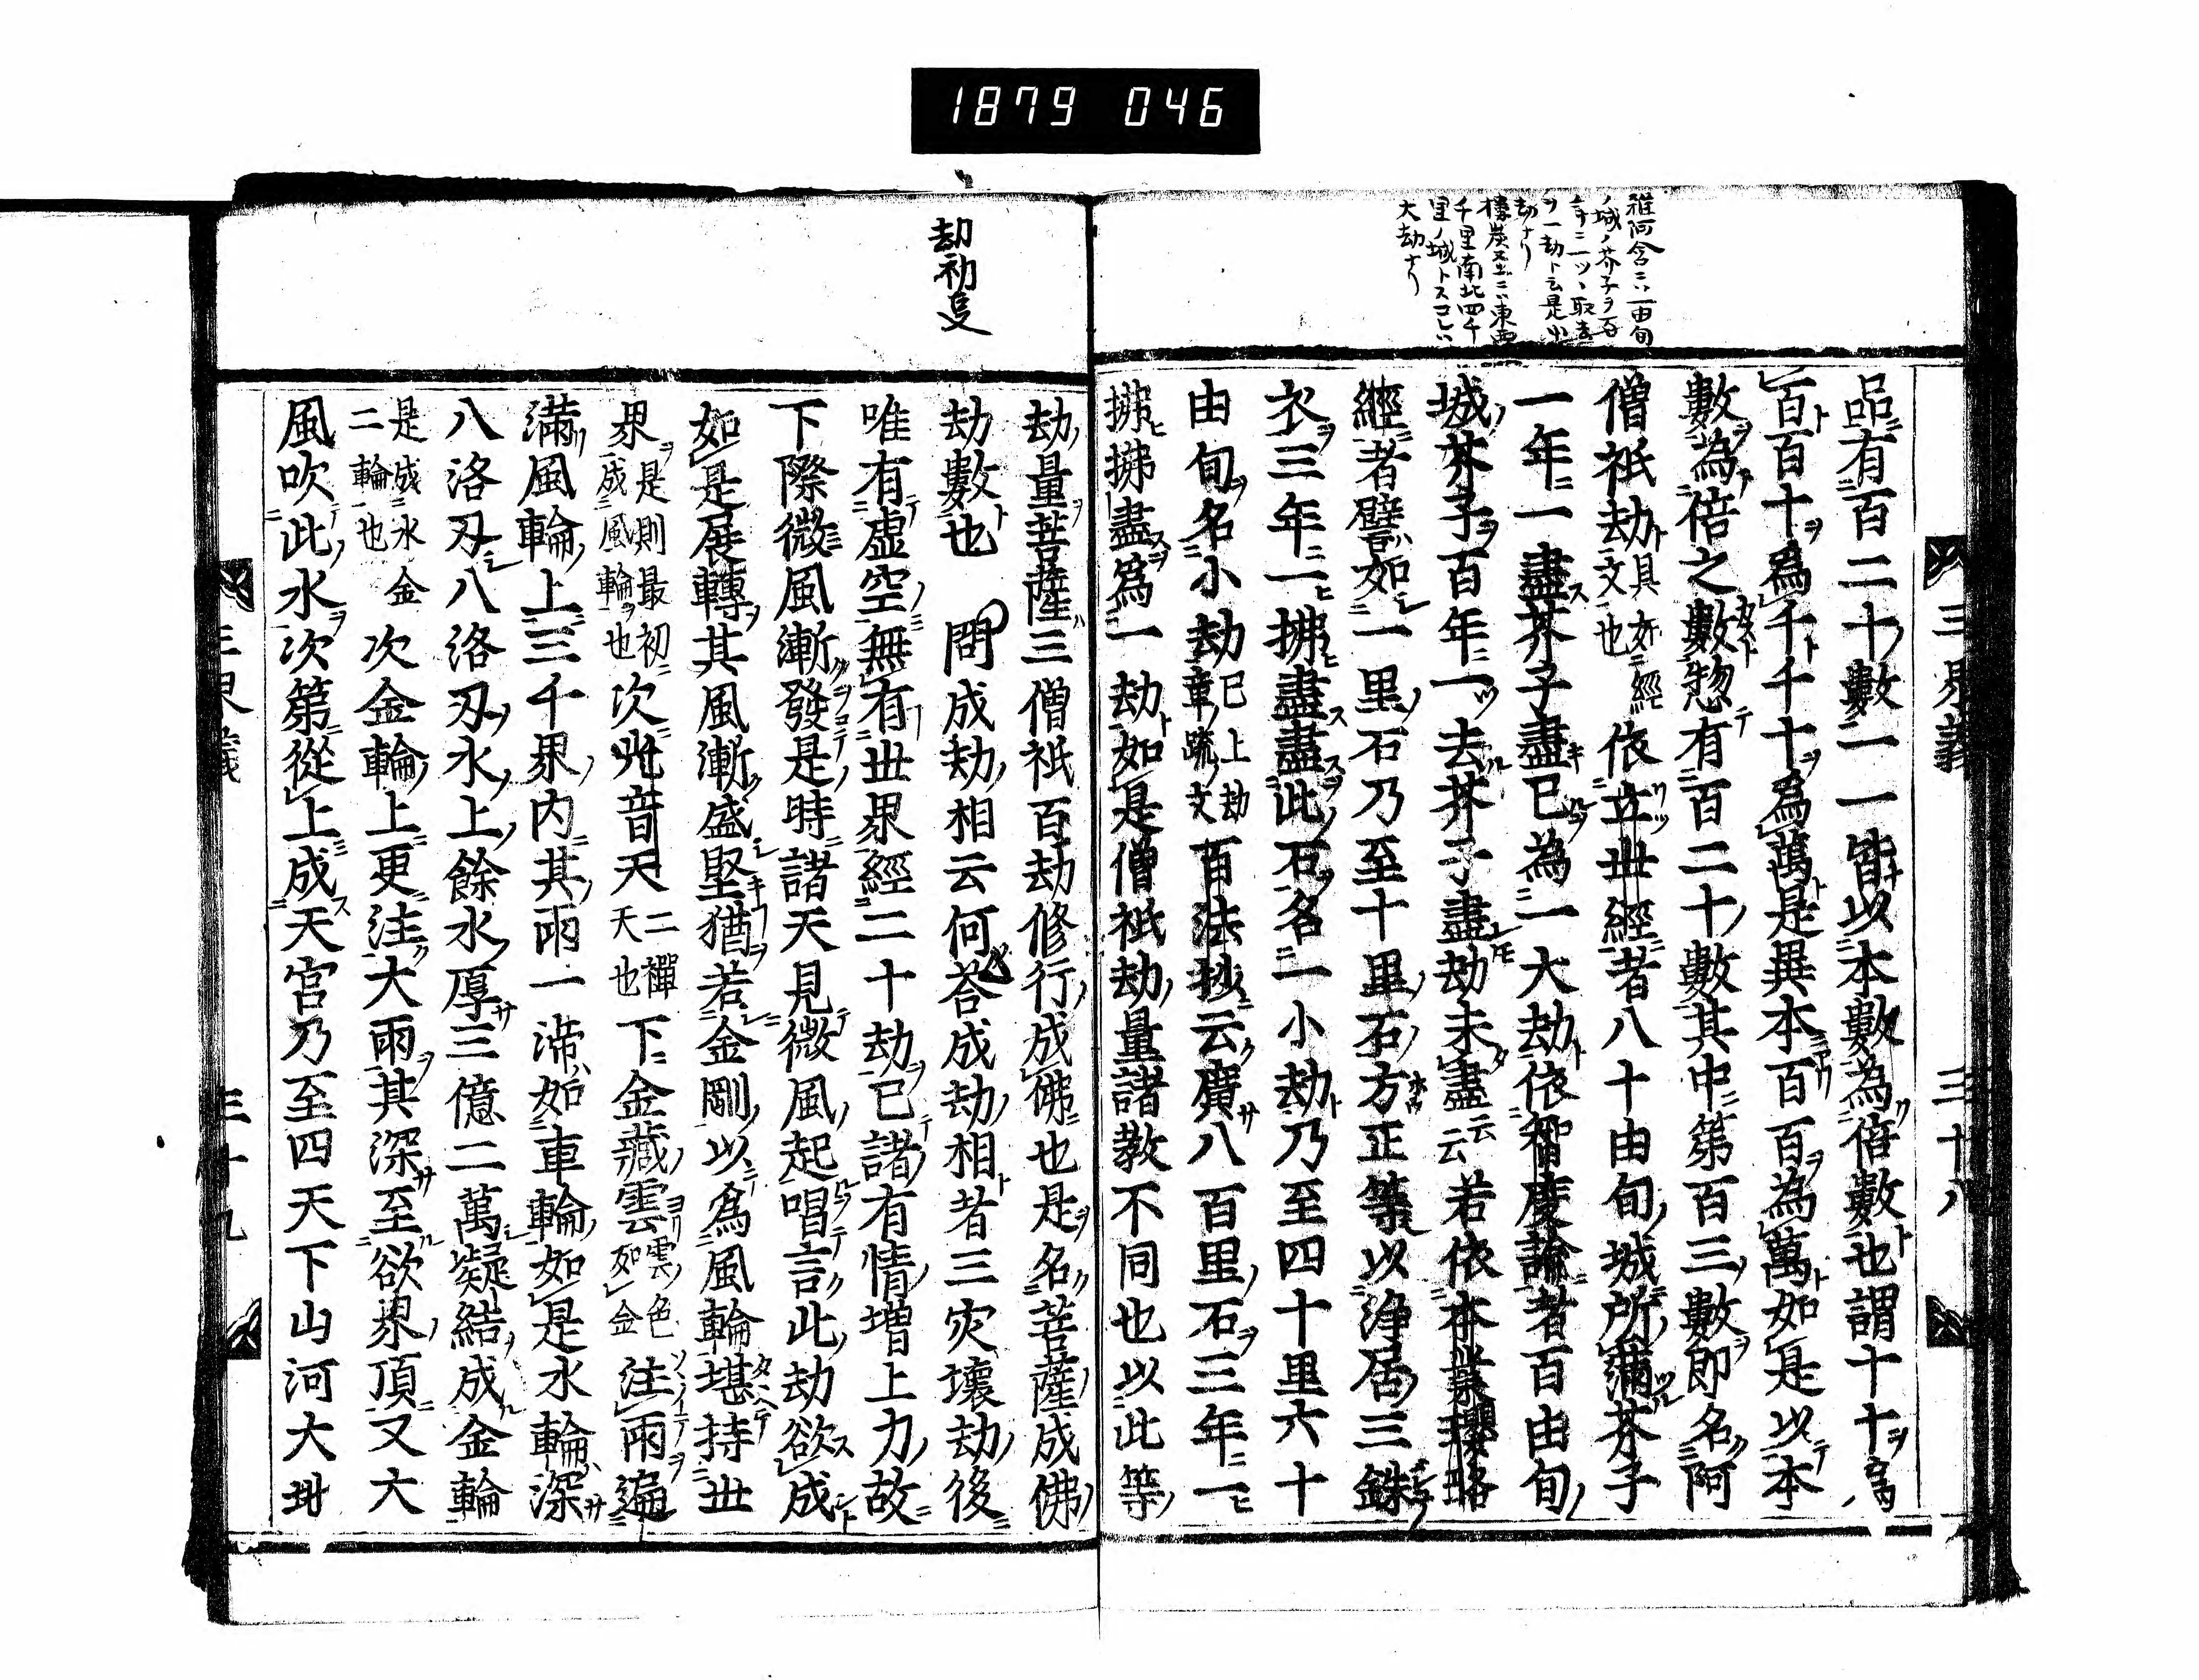 1879 046
三界義 三十八
雜阿含ニハ一由旬
ノ城ノ芥子ヲ百
年ニ一ツヽ取去
ヲ一劫ト云是小
劫ナリ
樓炭經ニハ東西
千里南北四千
里ノ城トスコレハ
大劫ナリ
品有百二十數一一皆以本數為倍數也謂十十為
百百十為千千十為萬是異本百百為萬如是以本
數為倍之數惣有百二十數其中第百三數即名阿
僧祇劫具如經文也依立世經者八十由旬城所滿芥子
一年一盡芥子盡已為一大劫依智度論者百由旬
城芥子百年一去芥子盡劫未盡云云若依本業瓔珞
經者譬如一里石乃至十里石方正等以淨居三銖
衣三年一拂盡盡此石名一小劫乃至四十里六十
由旬名小劫已上劫章䟽文百法抄云廣八百里石三年一
拂拂盡爲一劫如是僧祇劫量諸教不同也以此等
劫初㕝
劫量菩薩三僧祇百劫修行成佛也是名菩薩成佛
劫數也 問成劫相云何答成劫相者三灾壞劫後
唯有虛空無有世界經二十劫已諸有情增上力故
下際微風漸發是時諸天見微風起唱言此劫欲成
如是展轉其風漸盛堅猶若金剛以爲風輪堪持世
界是則最初成風輪也次光音天二禪天也下金藏雲雲色如金注雨遍
滿風輪上三千界內其雨一渧如車輪如是水輪深
八洛刄八洛刄水上餘水厚三億二萬凝結成金輪
是成水金二輪也次金輪上更注大雨其深至欲界頂又大
風吹此水次第從上成天宮乃至四天下山河大地
三界義 三十九